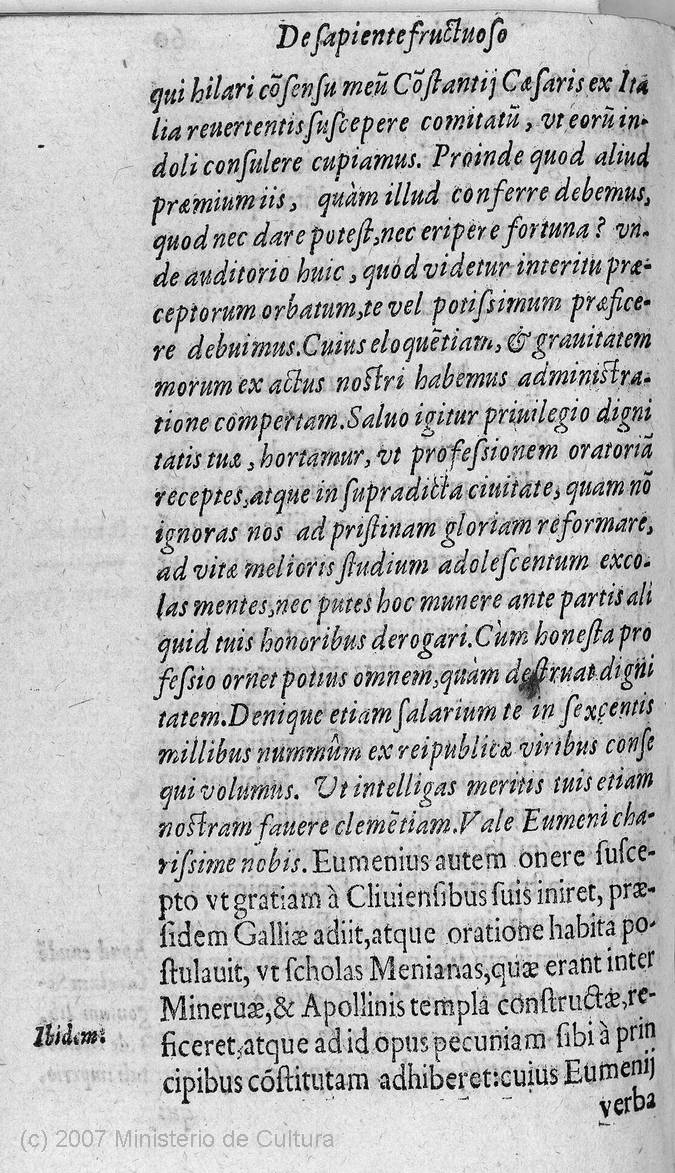 De sapiente fructuoso
qui hilari cõsensu meũ Cõstantij Cæsaris ex Ita
lia reuertentis suscepere comitatũ, vt eorũ in-
doli consulere cupiamus. Proinde quod aliud
præmium iis, quàm illud conferre debemus,
quod nec dare potest, nec eripere fortuna? vn-
de auditorio huic, quod videtur interitu præ-
ceptorum orbatum, te vel potissimum præfice-
re debuimus. Cuius eloquẽtiam, & grauitatem
morum ex actus nostri habemus administra-
tione compertam. Saluo igitur priuilegio digni
tatis tuæ, hortamur, vt professionem oratoriã
receptes, atque in supradicta ciuitate, quam nõ
ignoras nos ad pristinam gloriam reformare,
ad vitæ melioris studium adolescentum exco-
las mentes, nec putes hoc munere ante partis ali
quid tuis honoribus derogari. Cùm honesta pro
fessio ornet potius omnem, quàm destruat digni
tatem. Denique etiam salarium te in sexcentis
millibus nummûm ex reipublicæ viribus conse
qui volumus. Vt intelligas meritis tuis etiam
nostram fauere clemẽtiam. Vale Eumeni cha-
rissime nobis. Eumenius autem onere susce-
pto vt gratiam à Cliuiensibus suis iniret, præ-
sidem Galliæ adiit, atque oratione habita po-
stulauit, vt scholas Menianas, quæ erant inter
Mineruæ, & Apollinis templa constructæ, re-
Ibidem:
ficeret, atque ad id opus pecuniam sibi à prin
cipibus cõstitutam adhiberet: cuius Eumenij
verba
(c) 2007 Ministerio de Cultura